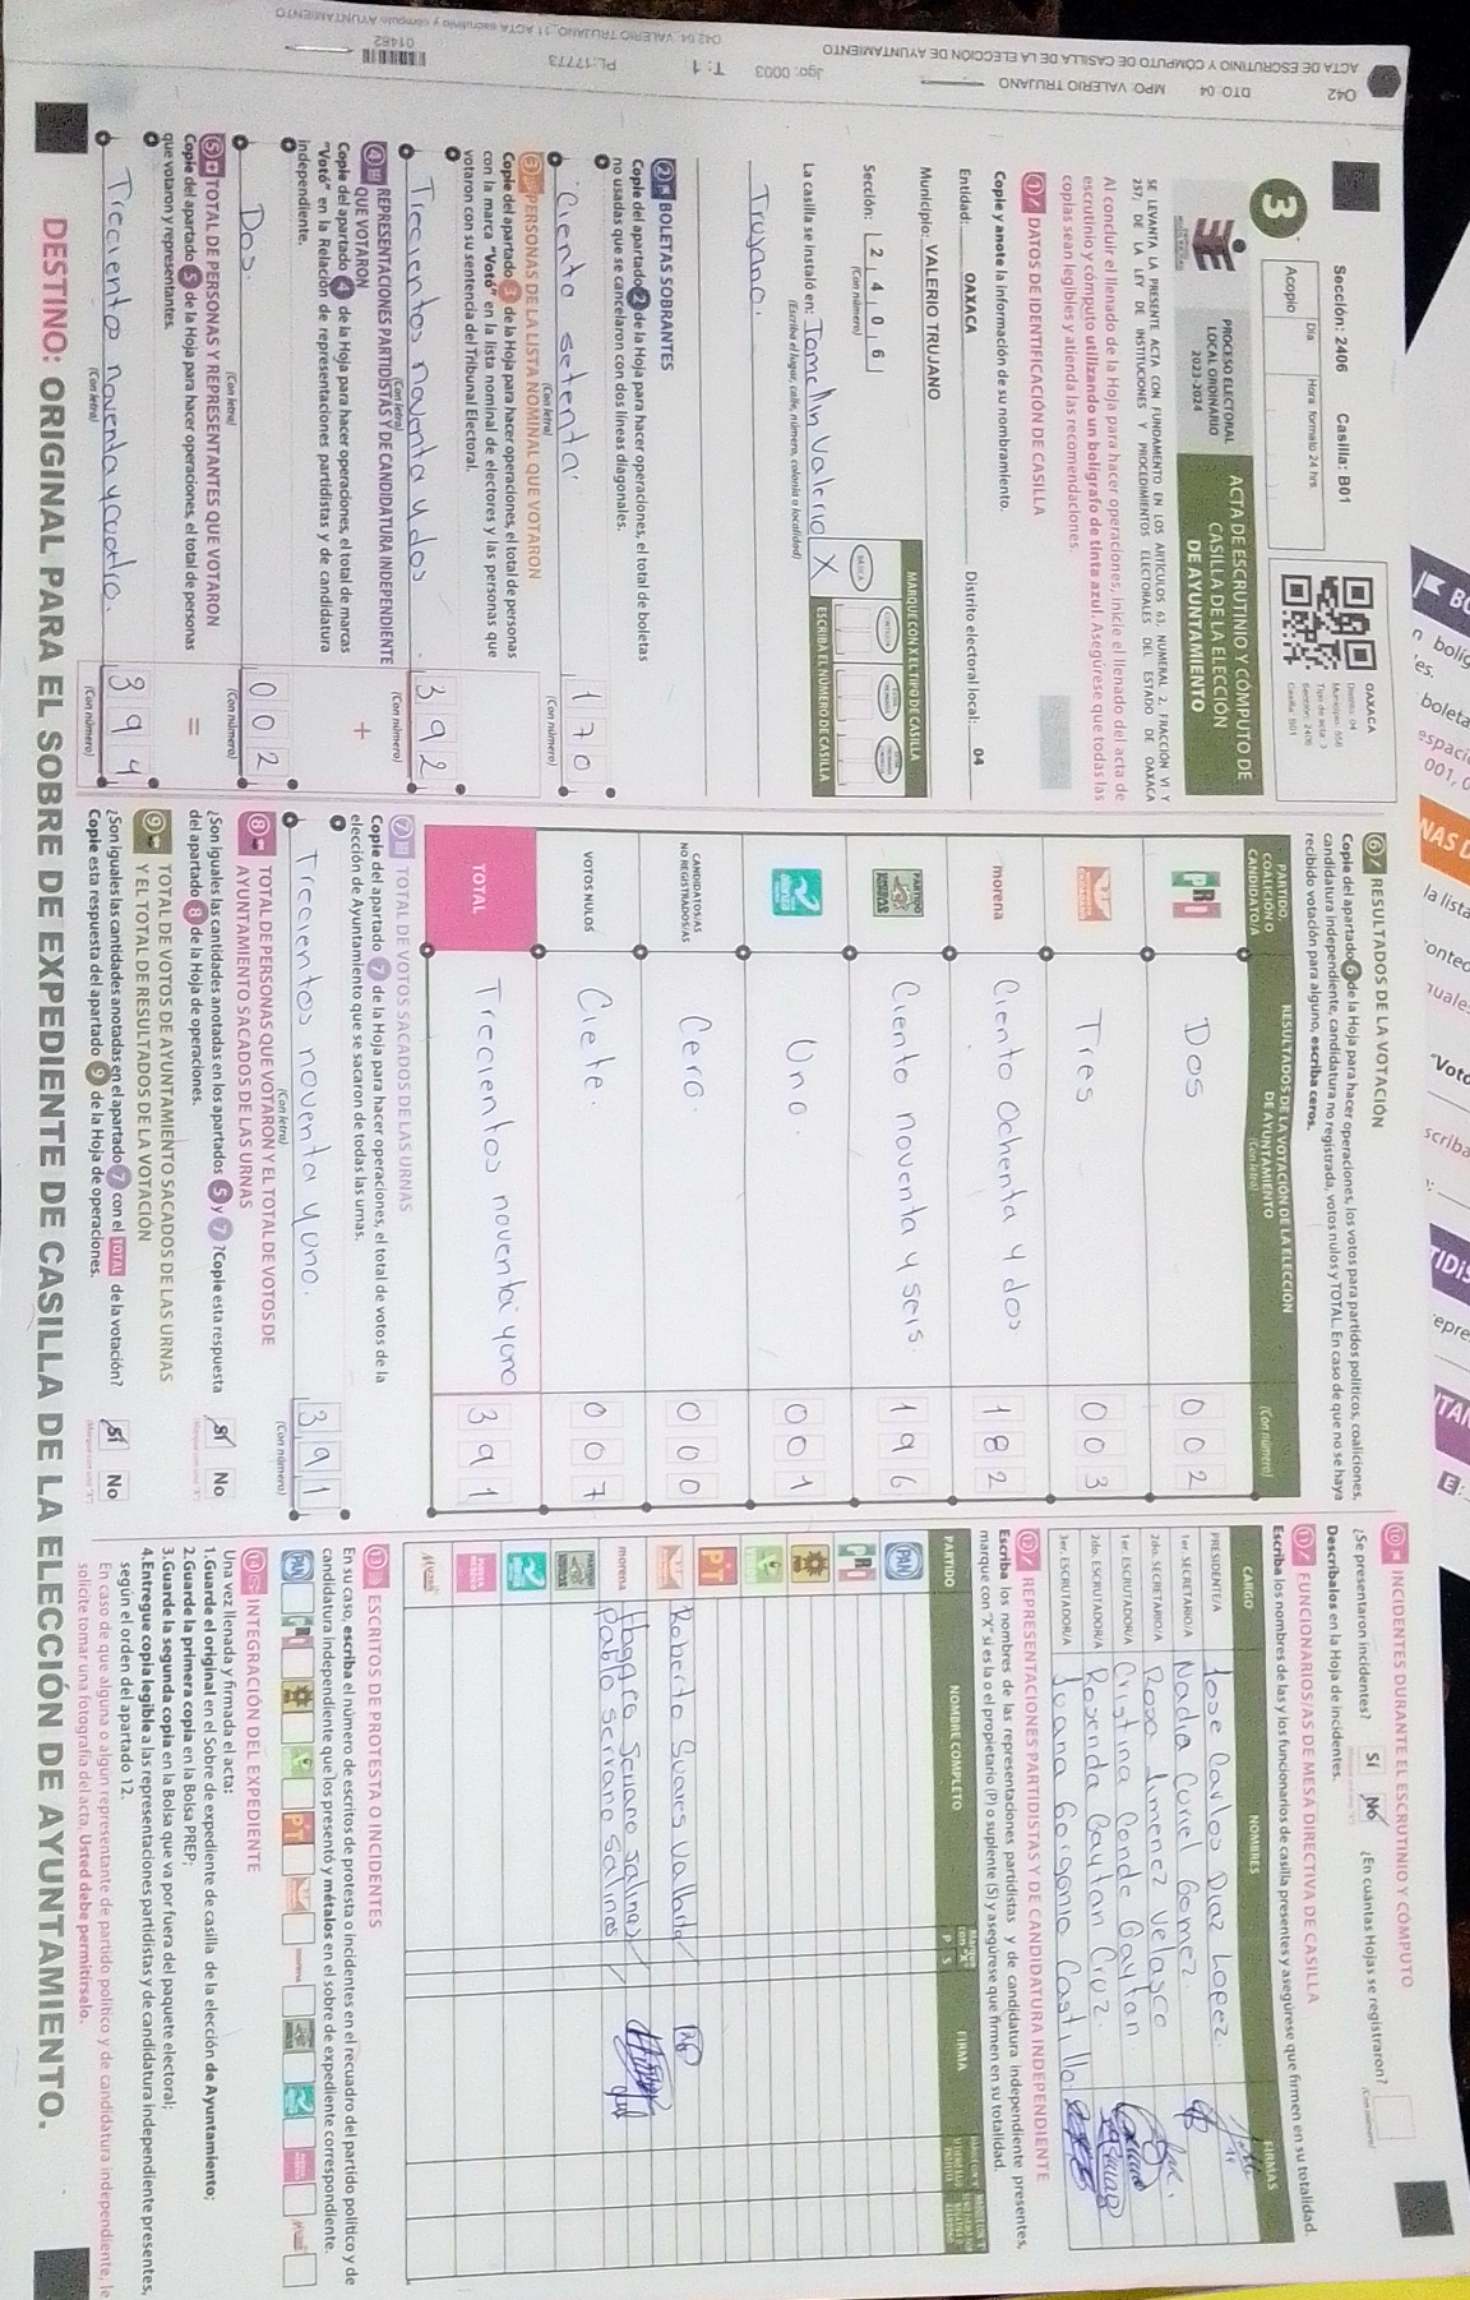 042 DTO: 04 MPO: VALERIO TRUJANO Jgo: 0003 T: 1 PL:17773 01482
ACTA DE ESCRUTINIO Y CÓMPUTO DE CASILLA DE LA ELECCIÓN DE AYUNTAMIENTO
042 04_VALERIO TRUJANO_11 ACTA escrutinio y cómputo AYUNTAMIENTO
Sección: 2406 Casilla: B01
3
Acopio
Día
Hora formato 24 hrs.
OAXACA
Distrito: 04
Tipo de acta: 3
Sección: 2406
Casilla: B01
PROCESO ELECTORAL
LOCAL ORDINARIO
2023-2024
ACTA DE ESCRUTINIO Y CÓMPUTO DE
CASILLA DE LA ELECCIÓN
DE AYUNTAMIENTO
SE LEVANTA LA PRESENTE ACTA CON FUNDAMENTO EN LOS ARTÍCULOS 63, NUMERAL 2, FRACCIÓN VI Y
257, DE LA LEY DE INSTITUCIONES Y PROCEDIMIENTOS ELECTORALES DEL ESTADO DE OAXACA
Al concluir el llenado de la Hoja para hacer operaciones, inicie el llenado del acta de
escrutinio y cómputo utilizando un bolígrafo de tinta azul. Asegúrese que todas las
copias sean legibles y atienda las recomendaciones.
1 DATOS DE IDENTIFICACIÓN DE CASILLA
Copie y anote la información de su nombramiento.
Entidad: OAXACA Distrito electoral local: 04
Municipio: VALERIO TRUJANO
Sección: 2 4 0 6
(Con número)
MARQUE CON X EL TIPO DE CASILLA
BÁSICA
X
ESCRIBA EL NÚMERO DE CASILLA
La casilla se instaló en: Tomellin Valerio
(Escriba el lugar, calle, número, colonia o localidad)
Trujano.
2 BOLETAS SOBRANTES
Copie del apartado 2 de la Hoja para hacer operaciones, el total de boletas
no usadas que se cancelaron con dos líneas diagonales.
Ciento setenta. 170
(Con letra) (Con número)
3 PERSONAS DE LA LISTA NOMINAL QUE VOTARON
Copie del apartado 3 de la Hoja para hacer operaciones, el total de personas
con la marca "Votó" en la lista nominal de electores y las personas que
votaron con su sentencia del Tribunal Electoral.
Trecientos noventa y dos 392
(Con letra) (Con número)
4 REPRESENTACIONES PARTIDISTAS Y DE CANDIDATURA INDEPENDIENTE
QUE VOTARON +
Copie del apartado 4 de la Hoja para hacer operaciones, el total de marcas
"Votó" en la Relación de representaciones partidistas y de candidatura
independiente.
Dos. 002
(Con letra) (Con número)
5 TOTAL DE PERSONAS Y REPRESENTANTES QUE VOTARON =
Copie del apartado 5 de la Hoja para hacer operaciones, el total de personas
que votaron y representantes.
Treciento noventa y cuatro. 394
(Con letra) (Con número)
6 RESULTADOS DE LA VOTACIÓN
Copie del apartado 6 de la Hoja para hacer operaciones, los votos para partidos políticos, coaliciones,
candidatura independiente, candidatura no registrada, votos nulos y TOTAL. En caso de que no se haya
recibido votación para alguno, escriba ceros.
PARTIDO,
COALICIÓN O
CANDIDATO/A
RESULTADOS DE LA VOTACIÓN DE LA ELECCIÓN
DE AYUNTAMIENTO
(Con letra)
(Con número)
PRI Dos 002
Tres 003
morena Ciento Ochenta y dos 182
PARTIDO Ciento noventa y seis. 196
Uno. 001
CANDIDATOS/AS
NO REGISTRADOS/AS
Cero. 000
VOTOS NULOS Ciete. 007
TOTAL Trecientos noventa y uno 391
7 TOTAL DE VOTOS SACADOS DE LAS URNAS
Copie del apartado 7 de la Hoja para hacer operaciones, el total de votos de la
elección de Ayuntamiento que se sacaron de todas las urnas.
Trecientos noventa y uno. 391
(Con letra) (Con número)
8 TOTAL DE PERSONAS QUE VOTARON Y EL TOTAL DE VOTOS DE
AYUNTAMIENTO SACADOS DE LAS URNAS
¿Son iguales las cantidades anotadas en los apartados 5 y 7 ? Copie esta respuesta
del apartado 8 de la Hoja de operaciones.
Sí No
9 TOTAL DE VOTOS DE AYUNTAMIENTO SACADOS DE LAS URNAS
Y EL TOTAL DE RESULTADOS DE LA VOTACIÓN
¿Son iguales las cantidades anotadas en el apartado 7 con el TOTAL de la votación?
Copie esta respuesta del apartado 9 de la Hoja de operaciones.
Sí No
10 INCIDENTES DURANTE EL ESCRUTINIO Y CÓMPUTO
¿Se presentaron incidentes? SÍ NO ¿En cuántas Hojas se registraron?
(Con número)
Descríbalos en la Hoja de incidentes.
11 FUNCIONARIOS/AS DE MESA DIRECTIVA DE CASILLA
Escriba los nombres de las y los funcionarios de casilla presentes y asegúrese que firmen en su totalidad.
CARGO NOMBRES FIRMAS
PRESIDENTE/A Jose Carlos Diaz Lopez.
1er. SECRETARIO/A Nadia Curiel Gomez.
2do. SECRETARIO/A Rosa Jimenez Velasco
1er. ESCRUTADOR/A Cristina Conde Gaytan.
2do. ESCRUTADOR/A Rosenda Gaytan Cruz.
3er. ESCRUTADOR/A Juana Gorgonio Castillo
12 REPRESENTACIONES PARTIDISTAS Y DE CANDIDATURA INDEPENDIENTE
Escriba los nombres de las representaciones partidistas y de candidatura independiente presentes,
marque con "X" si es la o el propietario (P) o suplente (S) y asegúrese que firmen en su totalidad.
PARTIDO NOMBRE COMPLETO P S FIRMA
PAN
PRI
PT
Roberto Suares Vallarta
morena
Pablo Serrano Salinas
13 ESCRITOS DE PROTESTA O INCIDENTES
En su caso, escriba el número de escritos de protesta o incidentes en el recuadro del partido político y de
candidatura independiente que los presentó y métalos en el sobre de expediente correspondiente.
PAN PRI PT morena
14 INTEGRACIÓN DEL EXPEDIENTE
Una vez llenada y firmada el acta:
1.Guarde el original en el Sobre de expediente de casilla de la elección de Ayuntamiento;
2.Guarde la primera copia en la Bolsa PREP;
3.Guarde la segunda copia en la Bolsa que va por fuera del paquete electoral;
4.Entregue copia legible a las representaciones partidistas y de candidatura independiente presentes,
según el orden del apartado 12.
En caso de que alguna o algun representante de partido político y de candidatura independiente, le
solicite tomar una fotografía del acta, Usted debe permitírselo.
DESTINO: ORIGINAL PARA EL SOBRE DE EXPEDIENTE DE CASILLA DE LA ELECCIÓN DE AYUNTAMIENTO.